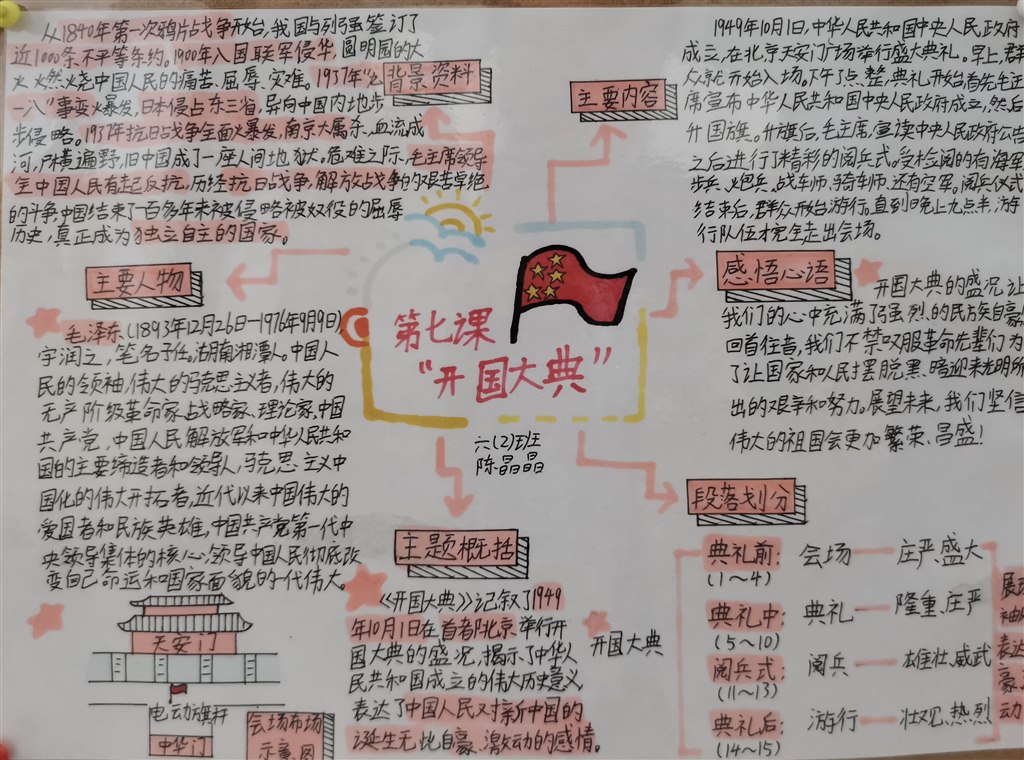 从1840年第一次鸦片战争开始,我国与列强签订了
近1000条不平等条约。1900年八国联军侵华,圆明园的大
火燃烧中国人民的痛苦、屈辱、灾难。1931年“九
一八”事变火暴发,日本侵占东三省,异向中国内地步
步侵略。1937年抗日战争全面火暴发,南京大屠杀,血流成
河,尸横遍野,旧中国成了一座人间地狱。危难之际,毛主席领导
全中国人民奋起反抗,历经抗日战争、解放战争的艰苦卓绝
的斗争,中国结束了一百多年来被侵略被奴役的屈辱
历史,真正成为独立自主的国家。
背景资料
主要内容
1949年10月1日,中华人民共和国中央人民政府
成立,在北京天安门广场举行盛大典礼。早上,群
众就开始入场。下午了点整,典礼开始首先毛主
席宣布中华人民共和国中央人民政府成立,然后
升国旗。升旗后,毛主席,宣读中央人民政府公告
之后进行了精彩的阅兵式。受检阅的有海军
步兵、炮兵、战车师、骑车师、还有空军。阅兵仪式
结束后,群众开始游行。直到晚上九点半,游
行队伍才完全走出会场。
主要人物
毛泽东(1893年12月26日—1976年9月9日)
字润之,笔名子任。湖南湘潭人。中国人
民的领袖,伟大的马克思主义者,伟大的
无产阶级革命家、战略家、理论家,中国
共产党,中国人民解放军和中华人民共和
国的主要缔造者和领导人,马克思主义中
国化的伟大开拓者,近代以来中国伟大的
爱国者和民族英雄,中国共产党第一代中
央领导集体的核心,领导中国人民彻底改
变自己命运和国家面貌的一代伟大。
第七课
“开国大典”
六(2)班
陈晶晶
感悟心语
开国大典的盛况,让
我们的心中充满了强烈的民族自豪
回首往昔,我们不禁叹服革命先辈们为
了让国家和人民摆脱黑暗迎来光明所
出的艰辛和努力。展望未来,我们坚信
伟大的祖国会更加繁荣、昌盛!
主题概括
《开国大典》记叙了1949
年10月1日在首都北京举行开
国大典的盛况,揭示了中华人
民共和国成立的伟大历史意义
表达了中国人民对新中国的
诞生无比自豪、激动的感情。
段落划分
开国大典
典礼前: 会场 庄严盛大
(1~4)
典礼中: 典礼 隆重、庄严
(5~10)
阅兵式: 阅兵 雄壮、威武
(11~13)
典礼后: 游行 壮观、热烈
(14~15)
表达
动
天安门
电动旗杆
中华门
会场布场
示意图